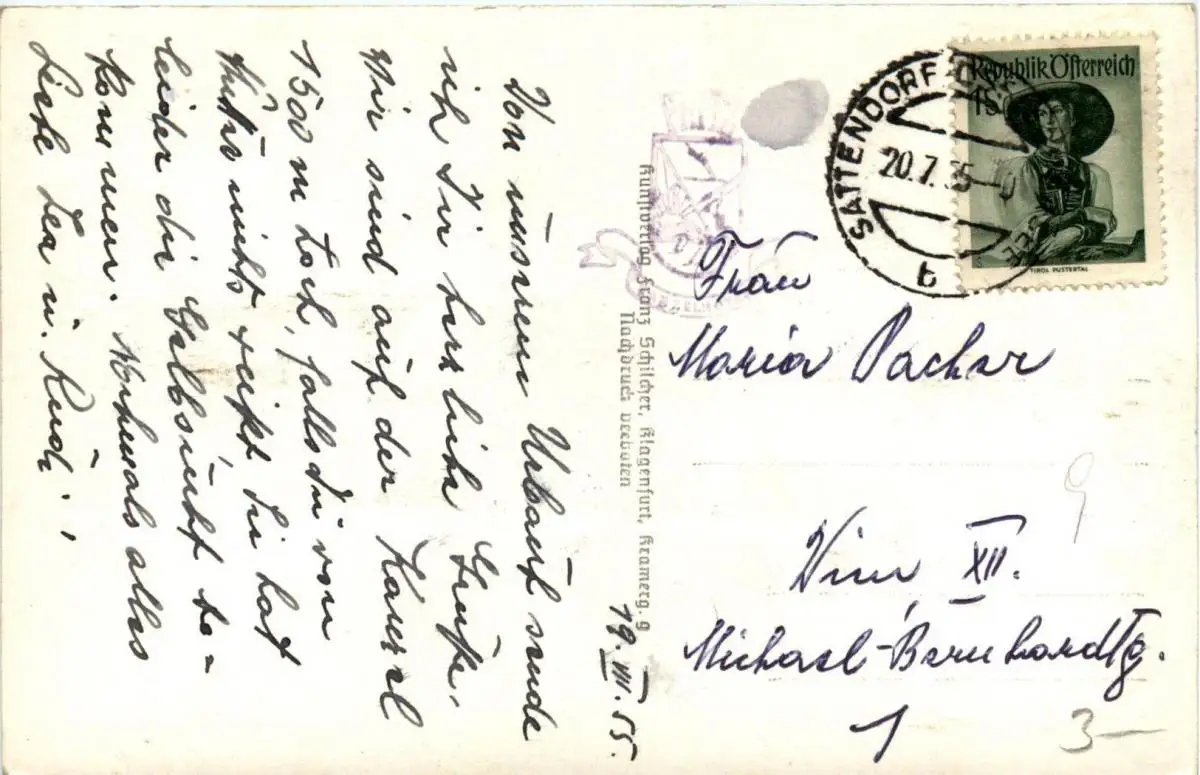 19.VII.55.
Von unserem Urlaub sende
ich Dir herzliche Grüße.
Wir sind auf der Kanzel
1500 m hoch, falls du von
Putzi nichts weißt sie hat
leider die Gelbsucht be-
kommen. Nochmals alles
Liebe Lea u. Rudi
Kunstverlag Franz Schilcher, Klagenfurt, Kramerg. 9
Nachdruck verboten
SATTENDORF
20.7.55
b
Republik Österreich
TIROL PUSTERTAL
Frau
Maria Pacher
Wien XII.
Michael-Bernhardtg.
1
9
3—